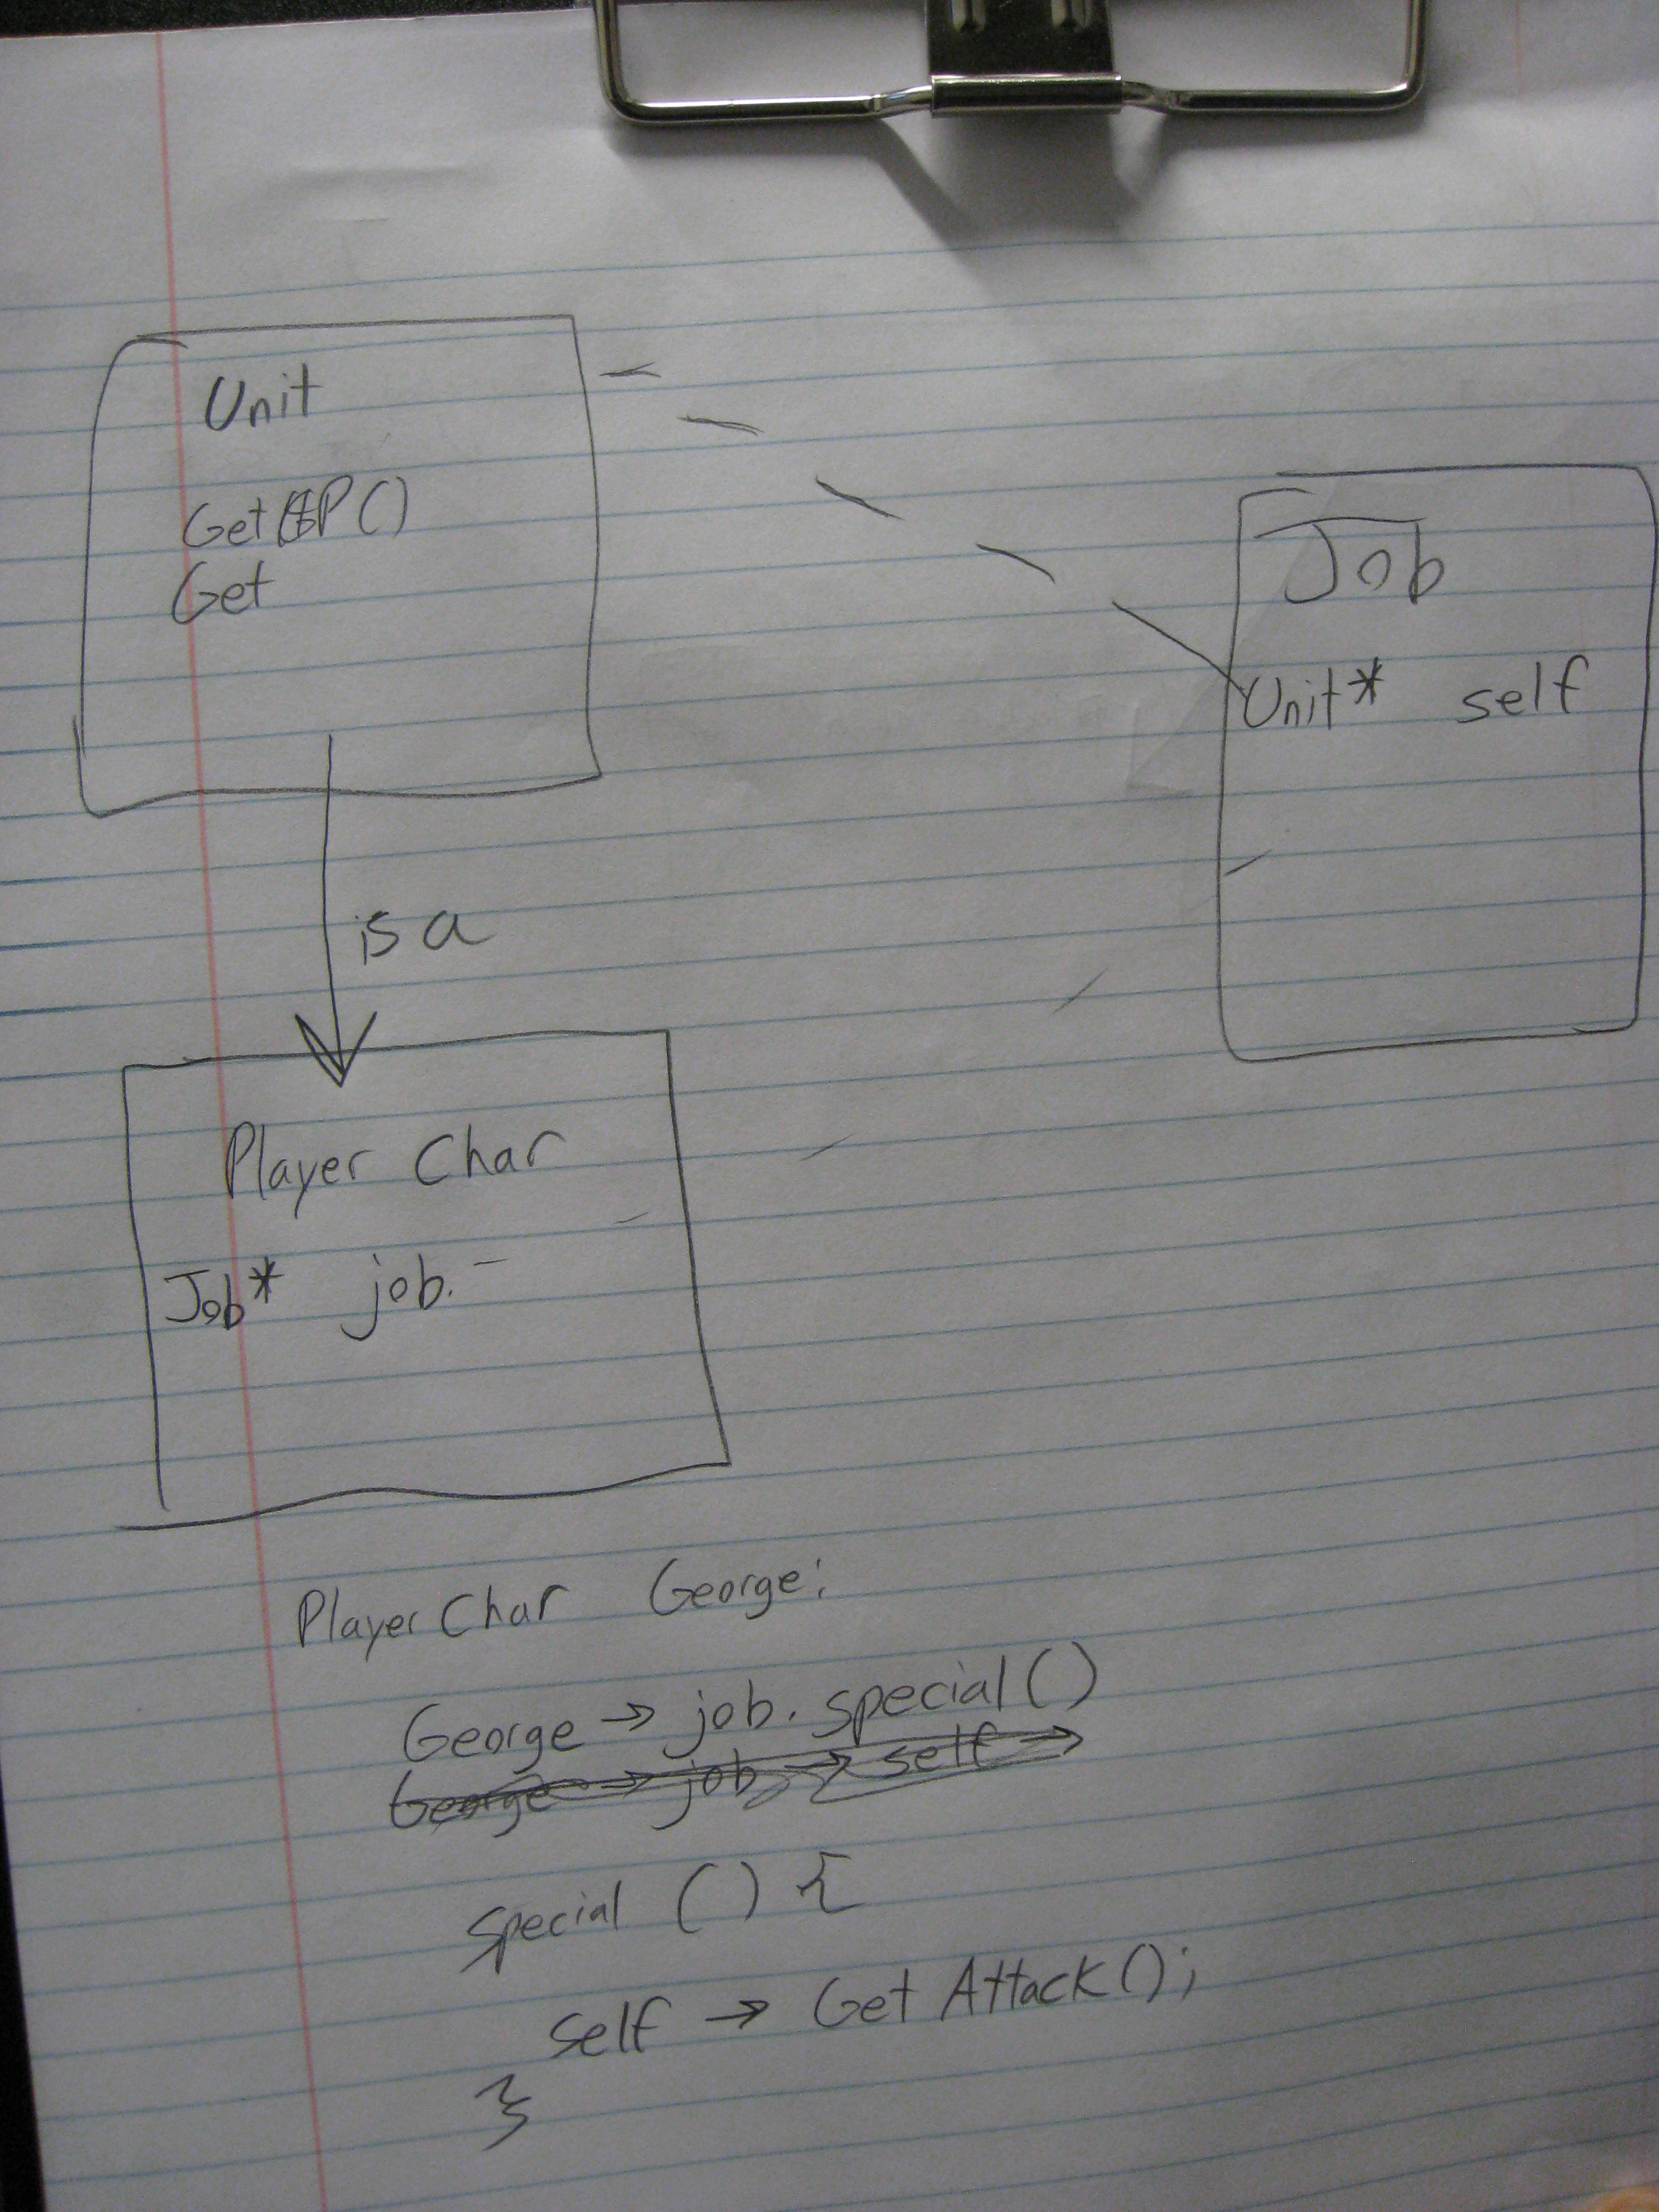 Unit
Get P()
Get
Job
Unit* self
is a
Player Char
Job* job.
Player Char George;
George → job. special()
George → job → self →
special () {
self → Get Attack();
}